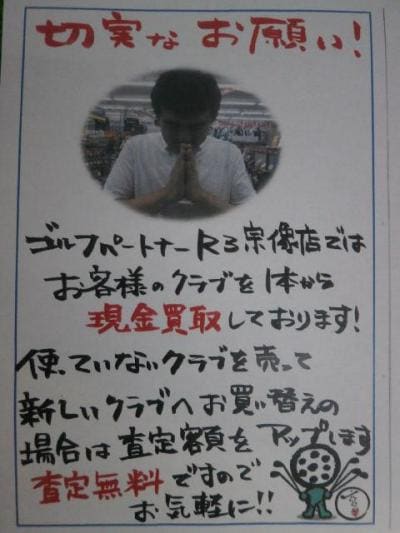 切実なお願い!
ゴルフパートナーR3宗像店では
お客様のクラブを1本から
現金買取しております!
使っていないクラブを売って
新しいクラブへお買い替えの
場合は査定額をアップします
査定無料ですので
お気軽に!!